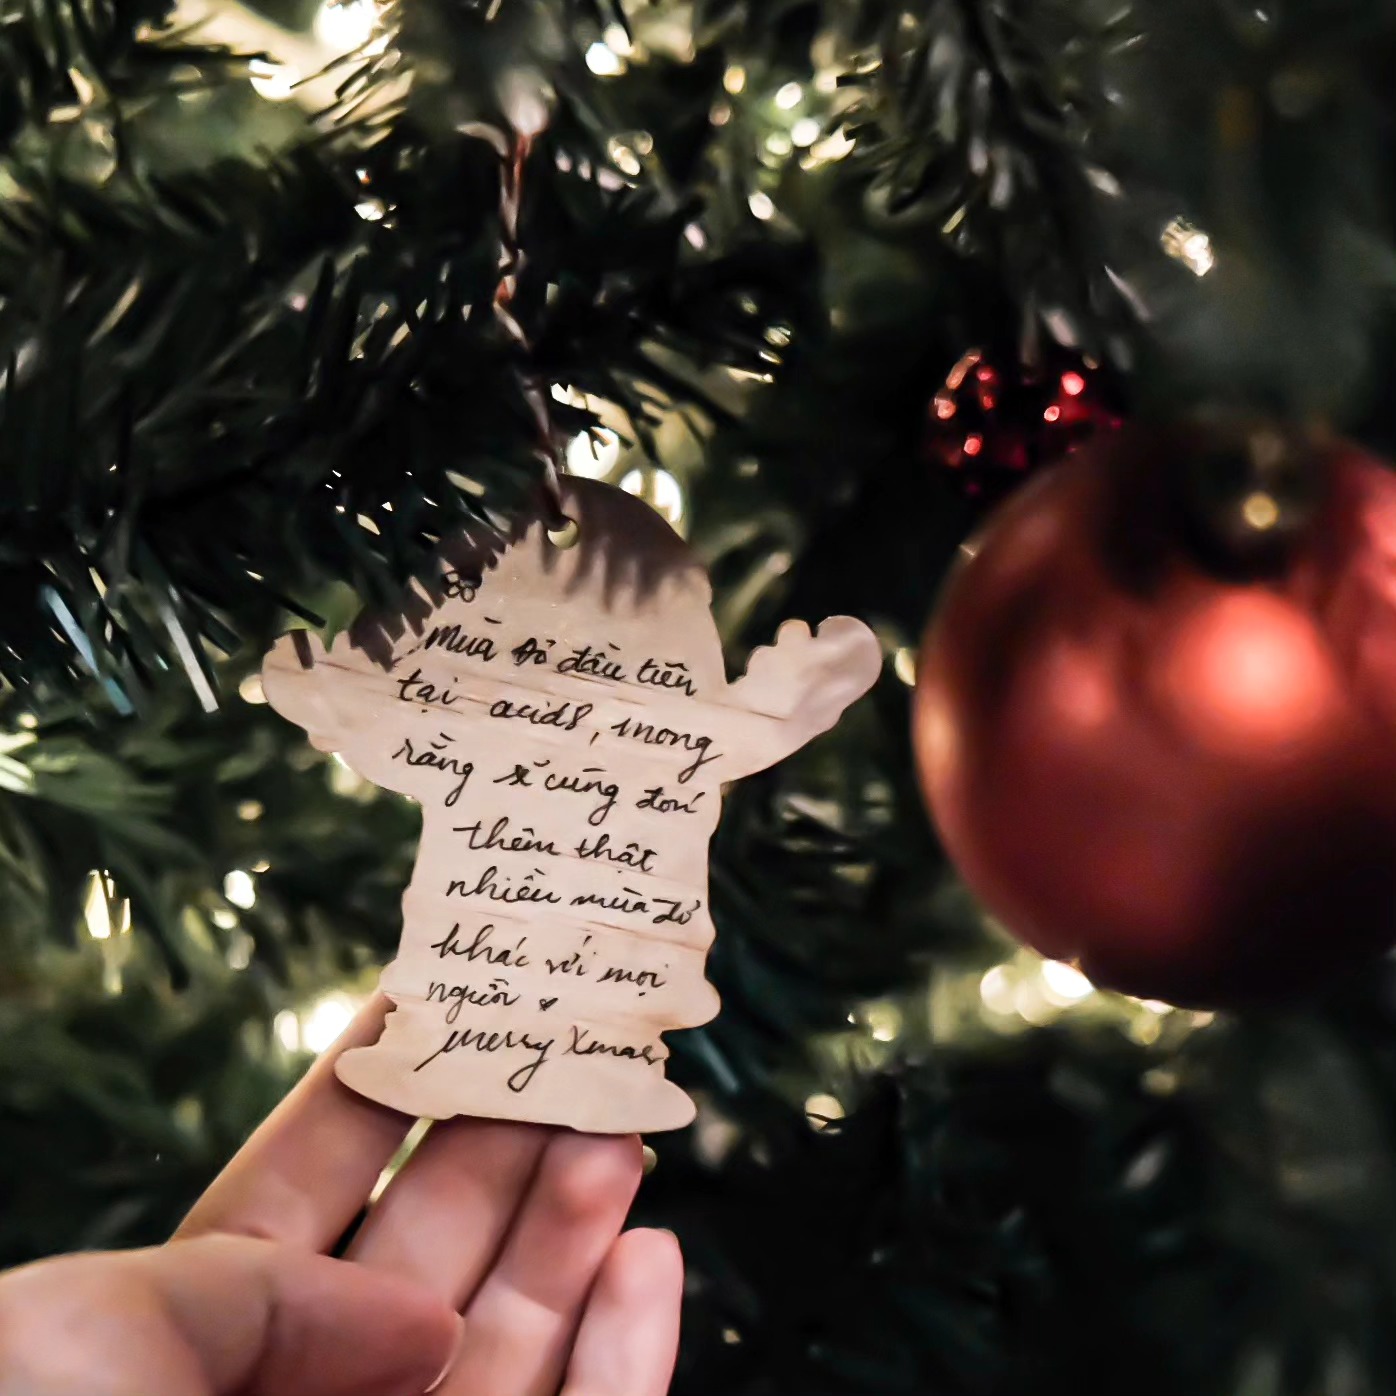 Mùa đỏ đầu tiên
tại acid8, mong
rằng sẽ cùng đón
thêm thật
nhiều mùa đỏ
khác với mọi
người
Merry Xmas